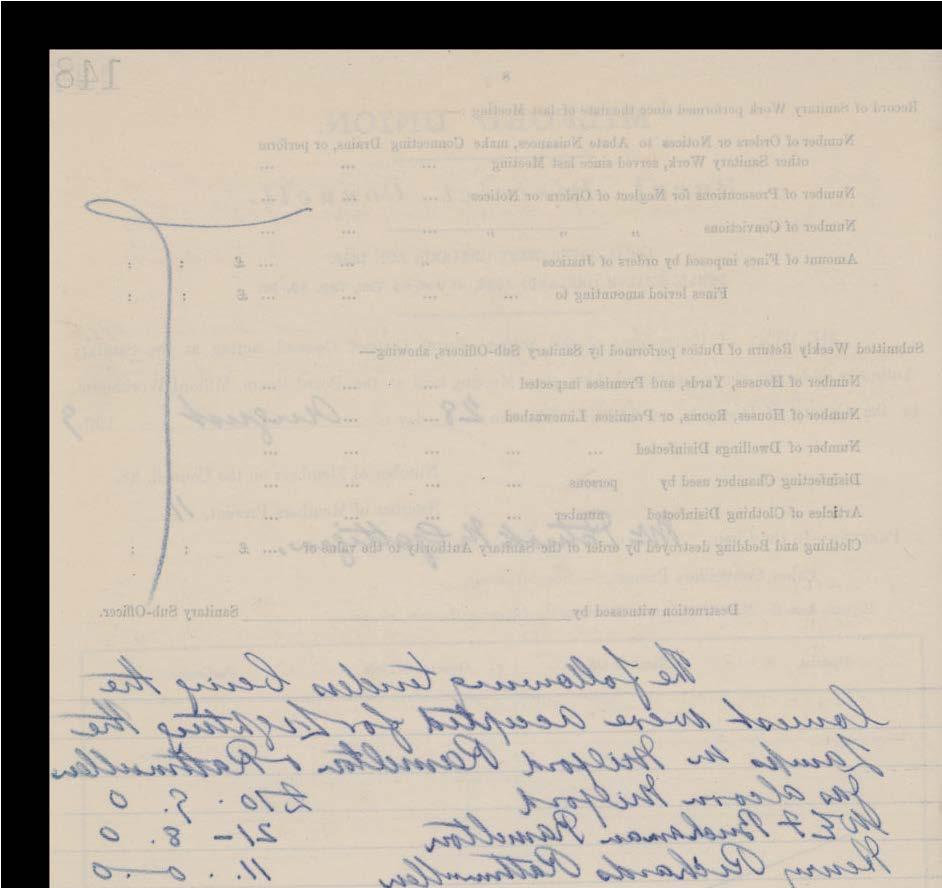 148
8
Record of Sanitary Work performed since the date of last Meeting—
Number of Orders or Notices to Abate Nuisances, make Connecting Drains, or perform
other Sanitary Work, served since last Meeting ... ... ...
Number of Prosecutions for Neglect of Orders or Notices ... ... ...
Number of Convictions „ „ „ ... ... ...
Amount of Fines imposed by orders of Justices ... ... ... £ : :
Fines levied amounting to ... ... ... ... £ : :
Submitted Weekly Return of Duties performed by Sanitary Sub-Officers, showing—
Number of Houses, Yards, and Premises inspected ... ... ...
Number of Houses, Rooms, or Premises Limewashed ... ... ...
Number of Dwellings Disinfected ... ... ... ... ...
Disinfecting Chamber used by persons ... ... ... ...
Articles of Clothing Disinfected number ... ... ... ...
Clothing and Bedding destroyed by order of the Sanitary Authority to the value of ... £ : :
Destruction witnessed by Sanitary Sub-Officer.
The following tenders being the
lowest were accepted for Lighting the
Lamps in Milford Ramelton & Rathmullen
Jas Alcorn Milford £10. 5. 0
Buchanan Ramelton 21 - 8. 0
Henry Richards Rathmullen 11. 0 - 0